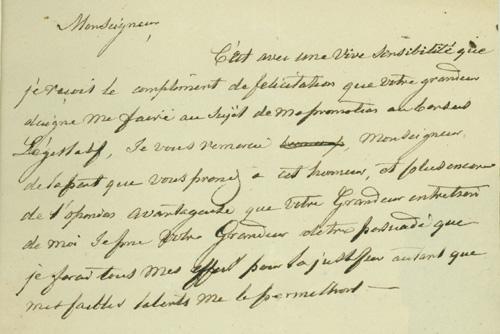 Monseigneur
C'est avec une vive sensibilité que
je reçoit le compliment de felicitation que votre grandeur
daigne me faire au sujet de ma promotion au
Legislatif, Je vous remercie, Monseigneur
de la part que vous prenez a cet honneur, et plus encore
de l'opinion avantageuse que votre Grandeur entretient
de moi Je prie Votre Grandeur d'etre persuadé que
je ferai tous mes effort pour la justifier autant que
mes faibles talents me le permettront —